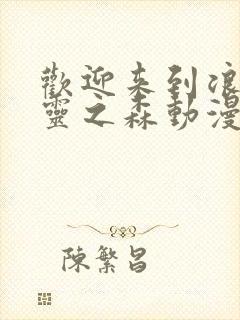 歡迎来到浪
靈之森動漫
陳繁昌